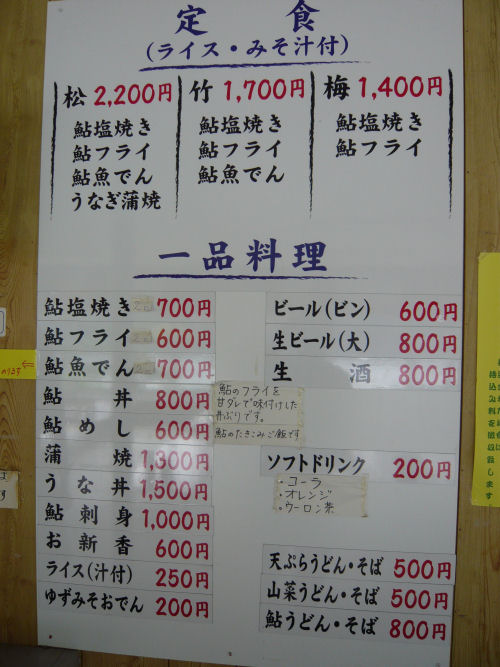 定食
(ライス・みそ汁付)
松 2,200円
鮎塩焼き
鮎フライ
鮎魚でん
うなぎ蒲焼
竹 1,700円
鮎塩焼き
鮎フライ
鮎魚でん
梅 1,400円
鮎塩焼き
鮎フライ
一品料理
鮎塩焼き 700円
鮎フライ 600円
鮎魚でん 700円
鮎丼 800円
鮎めし 600円
蒲焼 1,300円
うな丼 1,500円
鮎刺身 1,000円
お新香 600円
ライス(汁付) 250円
ゆずみそおでん 200円
鮎のフライを
甘ダレで味付けした
丼ぶりです。
鮎のたきこみご飯です
ビール(ビン) 600円
生ビール(大) 800円
生酒 800円
ソフトドリンク 200円
・コーラ
・オレンジ
・ウーロン茶
天ぷらうどん・そば 500円
山菜うどん・そば 500円
鮎うどん・そば 800円